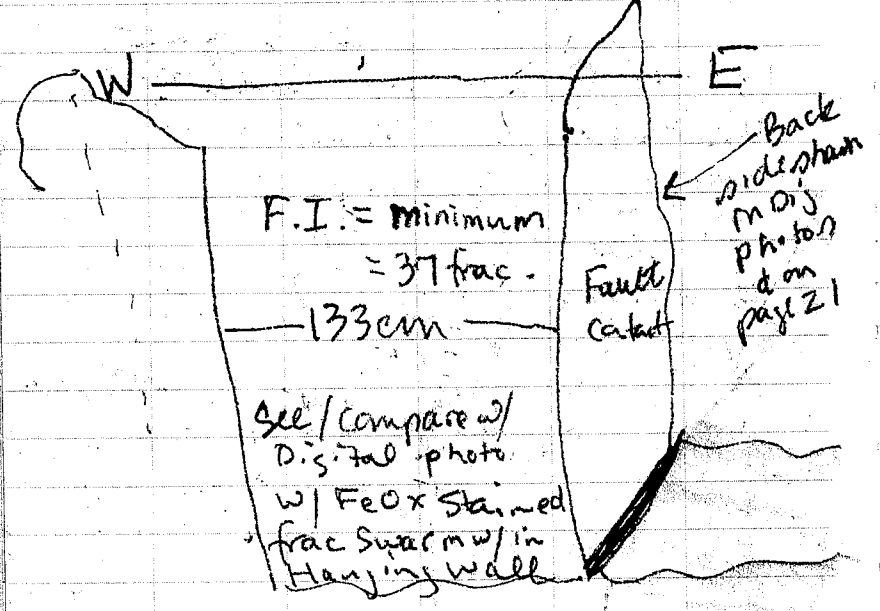 W E
Back
side shown
in Dig
photos
& on
page 21
F.I. = minimum
= 37 frac.
133cm
Fault
Contact
See/compare w/
Digital photo
w/ FeOx Stained
frac Swarm w/in
Hanging Wall